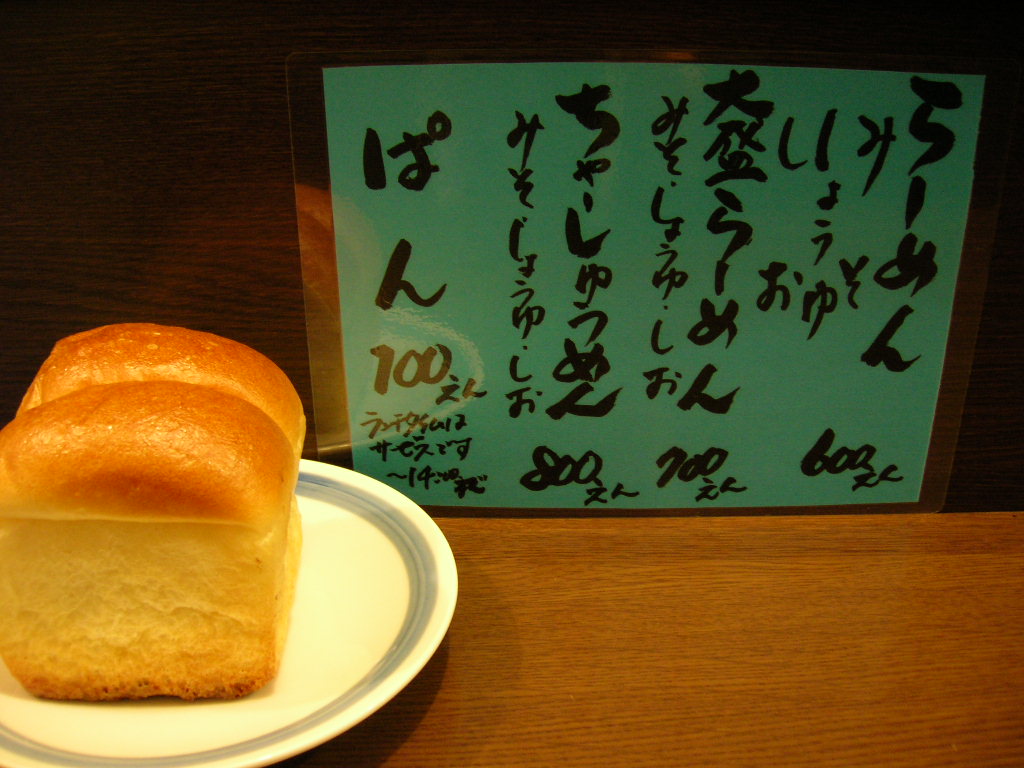 らーめん
みそ
しょうゆ
しお
600えん
大盛らーめん
みそ・しょうゆ・しお
700えん
ちゃーしゅうめん
みそ・しょうゆ・しお
800えん
ぱん
100えん
ランチタイムは
サービスです
～14:00まで